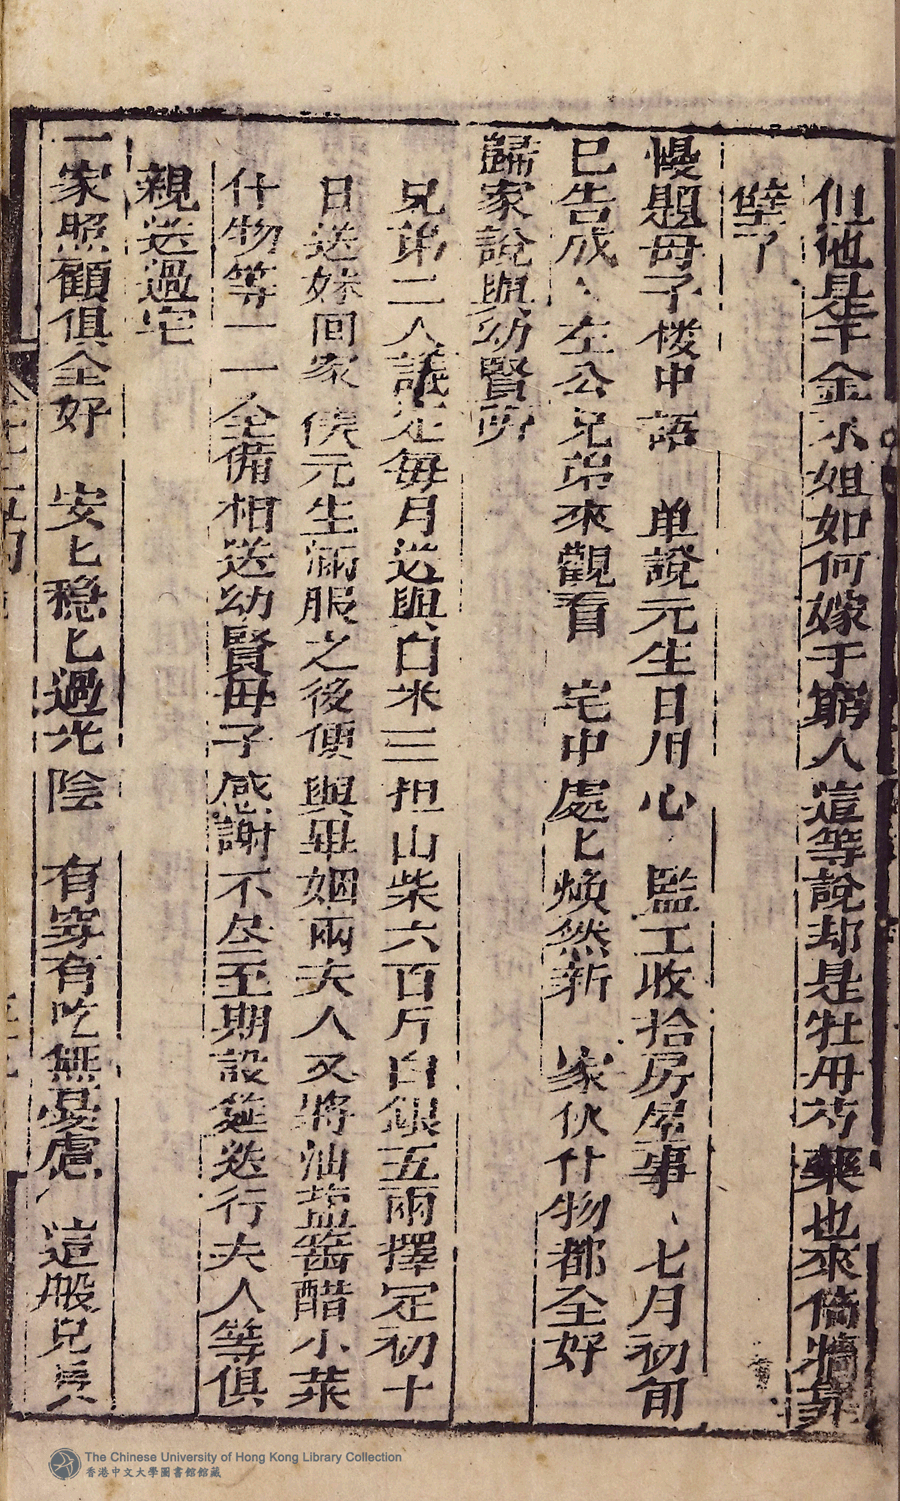 但他是千金小姐如何嫁于窮人這等說却是牡丹芍藥也來倚墻靠
壁了
慢題母子楼中語　单說元生日用心　監工收拾房屋事　七月初旬
已告成　左公兄弟來觀看　宅中處匕煥然新　家伙什物都全好
歸家說與幼賢㪽
兄弟二人議定每月送與白米三担山柴六百斤白銀五兩擇定初十
日送妹囬家俟元生滿服之後便與畢姻兩夫人又將油盐醬醋小菜
什物等一一全備相送幼賢母子感謝不尽至期設筵送行夫人等俱
親送過宅
一家照顧俱全好　安匕穏匕過光陰　有穿有吃無憂慮　這般兒
The Chinese University of Hong Kong Library Collection
香港中文大學圖書館館藏